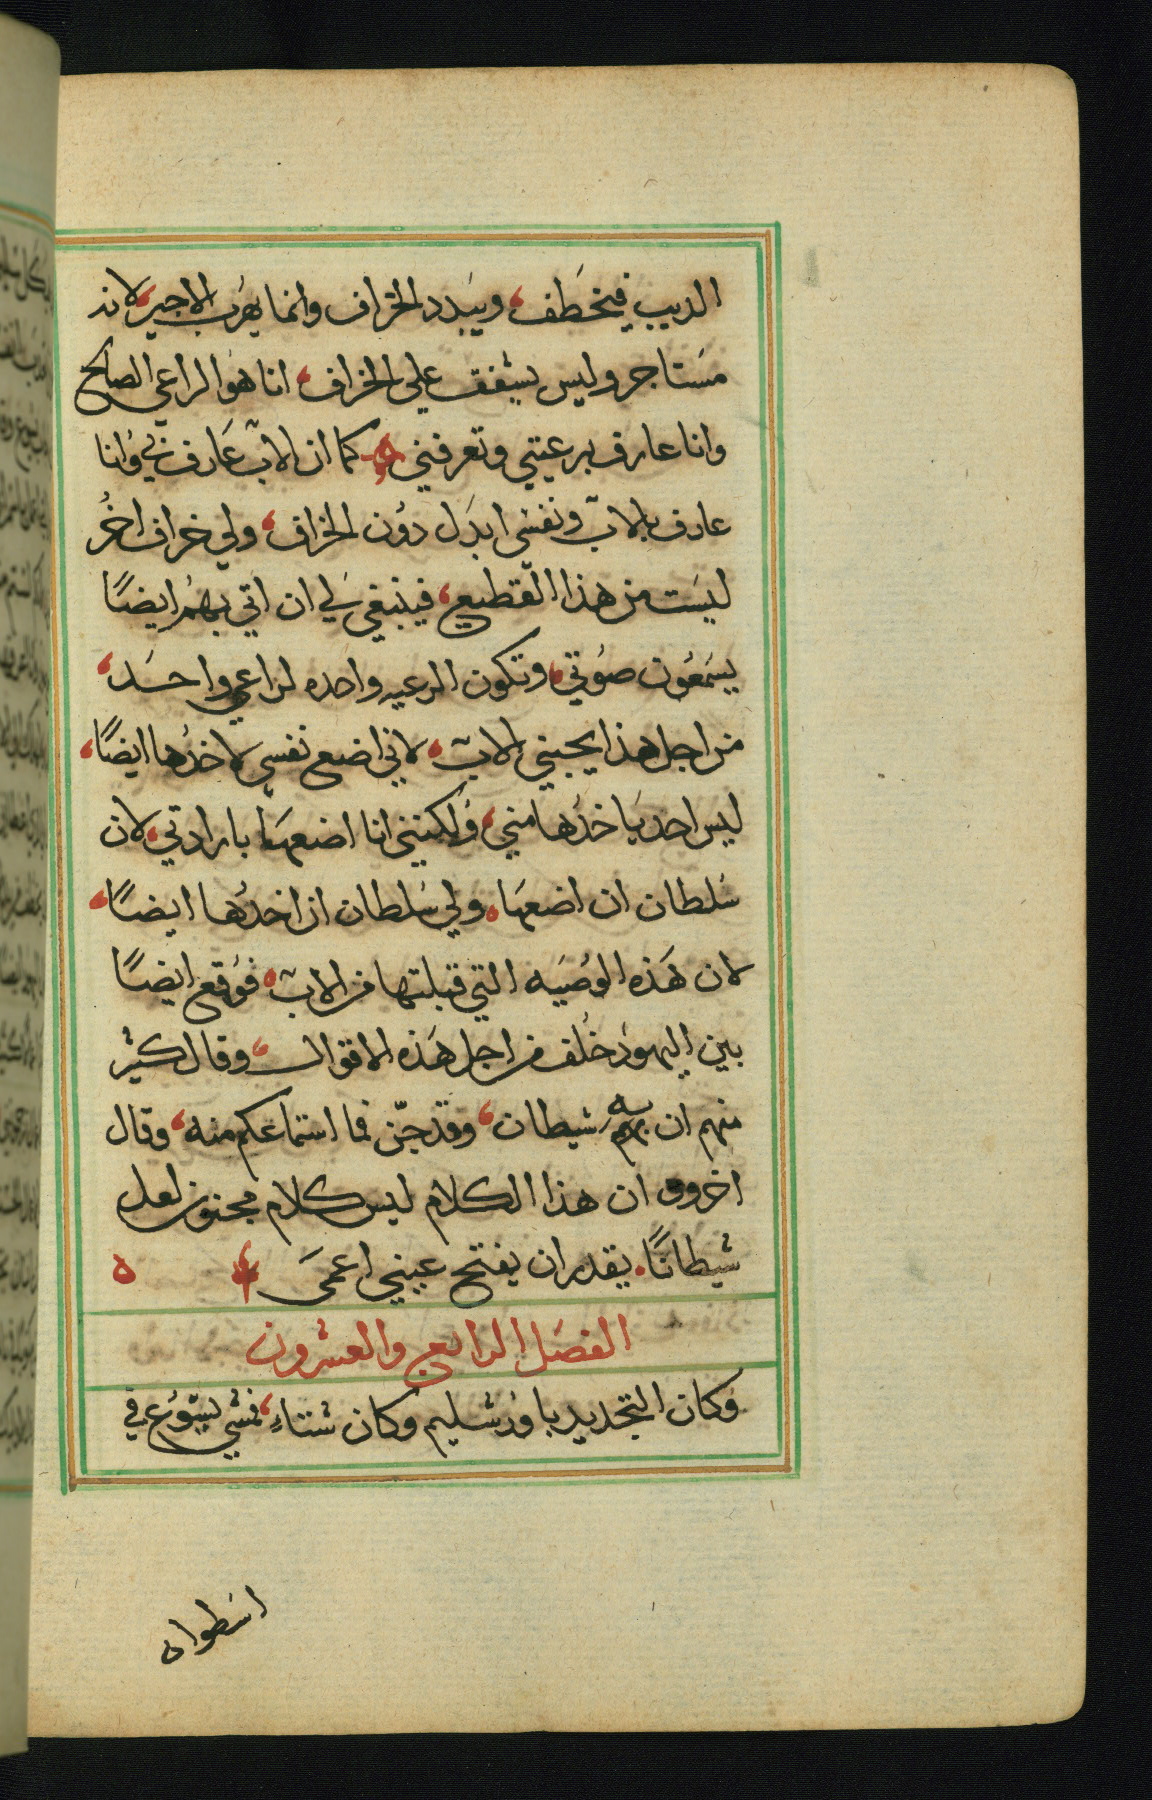 الديب فيخطف، ويبدد الخراف وانما يهرب الاجير، لانه
مستاجر وليس يشفق علي الخراف، انا هو الراعي الصالح
وانا عارف برعيتي وتعرفني كما ان الاب عارف بي وانا
عارف بالاب ونفسي ابدل دون الخراف، ولي خراف اخر
ليست من هذا القطيع، فينبغي لي ان اتي بهم ايضًا
يسمعون صوتي، وتكون الرعيه واحده لراعي واحد،
من اجل هذا يحبني الاب، لاني اضع نفسي لاخدها ايضًا،
ليس احد ياخدها مني، ولكنني انا اضعها بارادتي، لان
سلطان ان اضعها، ولي سلطان ان اخدها ايضًا،
لان هذه الوصيه التي قبلتها من الاب، فوقع ايضًا
بين اليهود خلف من اجل هذه الاقوال، وقال كثير
منهم ان به شيطان، وقد جنّ فما استماعكم منه، وقال
اخرون ان هذا الكلام ليس كلام مجنون لعل
شيطانًا، يقدر ان يفتح عيني اعمى ه
الفصل الرابع والعشرون
وكان التجديد باورشليم وكان شتاء، فمشي يسوع في
اسطوان